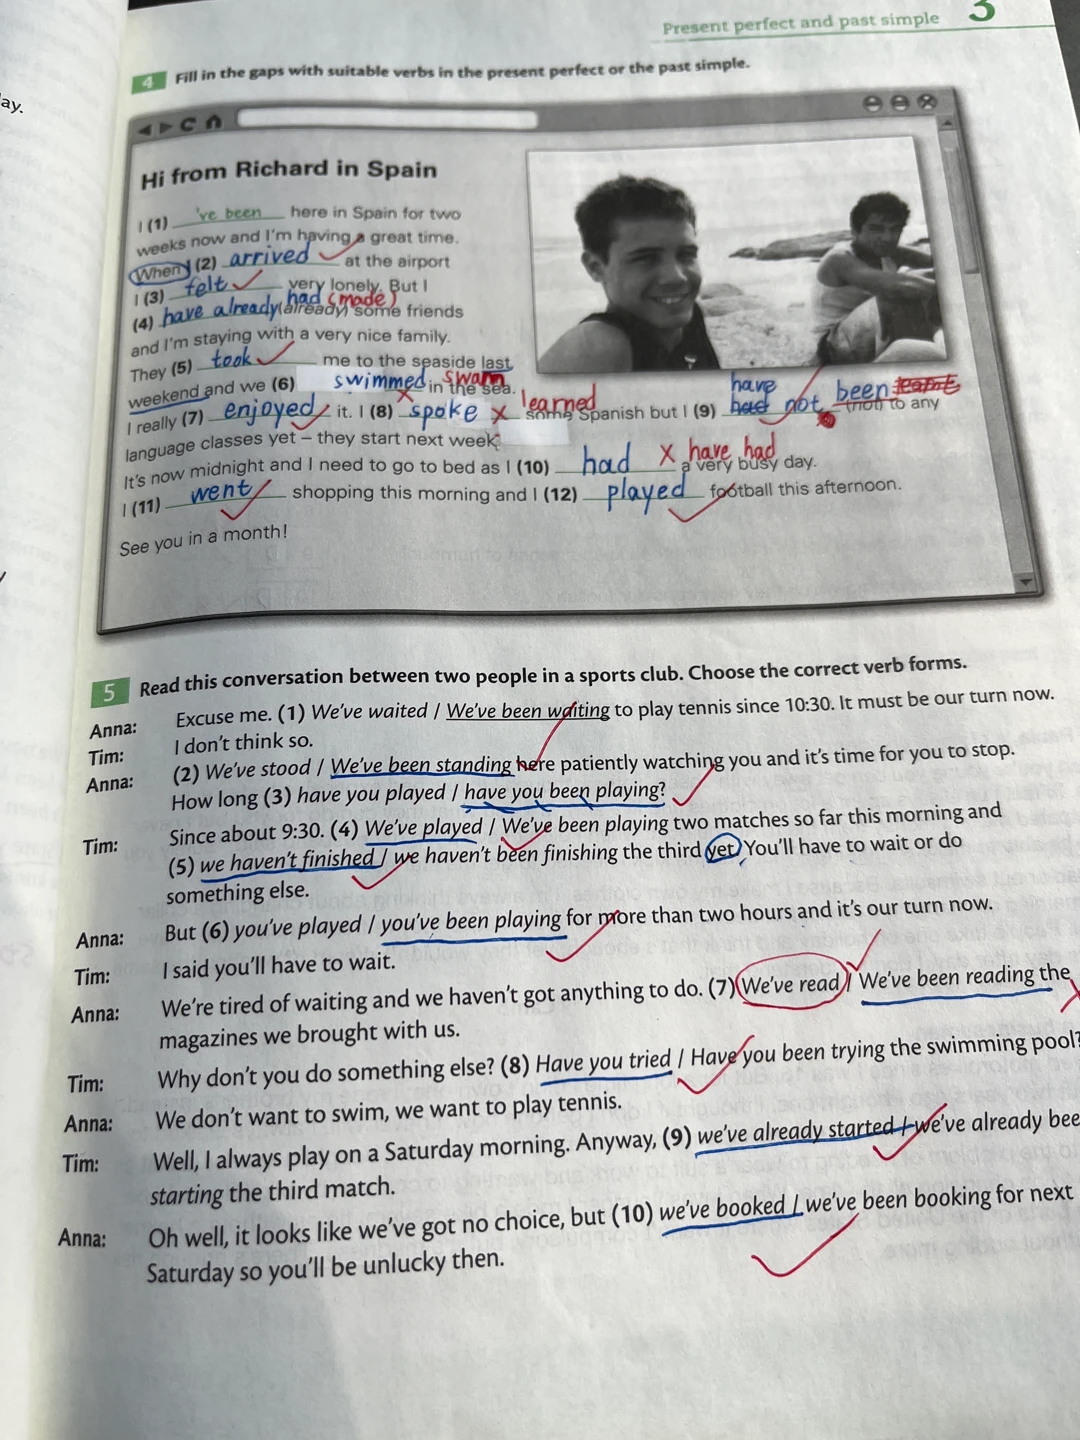 Present perfect and past simple 3
ay.
4 Fill in the gaps with suitable verbs in the present perfect or the past simple.
Hi from Richard in Spain
I (1) 've been here in Spain for two
weeks now and I'm having a great time.
When I (2) arrived at the airport
I (3) felt very lonely. But I
had (made)
(4) have already (already) some friends
and I'm staying with a very nice family.
They (5) took me to the seaside last
weekend and we (6) swimmed in the sea.
swam
I really (7) enjoyed it. I (8) spoke x some Spanish but I (9) had not been (not) to any
learned
have
language classes yet – they start next week
It's now midnight and I need to go to bed as I (10) had x a very busy day.
have had
I (11) went shopping this morning and I (12) played football this afternoon.
See you in a month!
5 Read this conversation between two people in a sports club. Choose the correct verb forms.
Anna: Excuse me. (1) We've waited / We've been waiting to play tennis since 10:30. It must be our turn now.
Tim: I don't think so.
Anna: (2) We've stood / We've been standing here patiently watching you and it's time for you to stop.
How long (3) have you played / have you been playing?
Tim: Since about 9:30. (4) We've played / We've been playing two matches so far this morning and
(5) we haven't finished / we haven't been finishing the third yet. You'll have to wait or do
something else.
Anna: But (6) you've played / you've been playing for more than two hours and it's our turn now.
Tim: I said you'll have to wait.
Anna: We're tired of waiting and we haven't got anything to do. (7) We've read / We've been reading the
magazines we brought with us.
Tim: Why don't you do something else? (8) Have you tried / Have you been trying the swimming pool?
Anna: We don't want to swim, we want to play tennis.
Tim: Well, I always play on a Saturday morning. Anyway, (9) we've already started / we've already bee
starting the third match.
Anna: Oh well, it looks like we've got no choice, but (10) we've booked / we've been booking for next
Saturday so you'll be unlucky then.